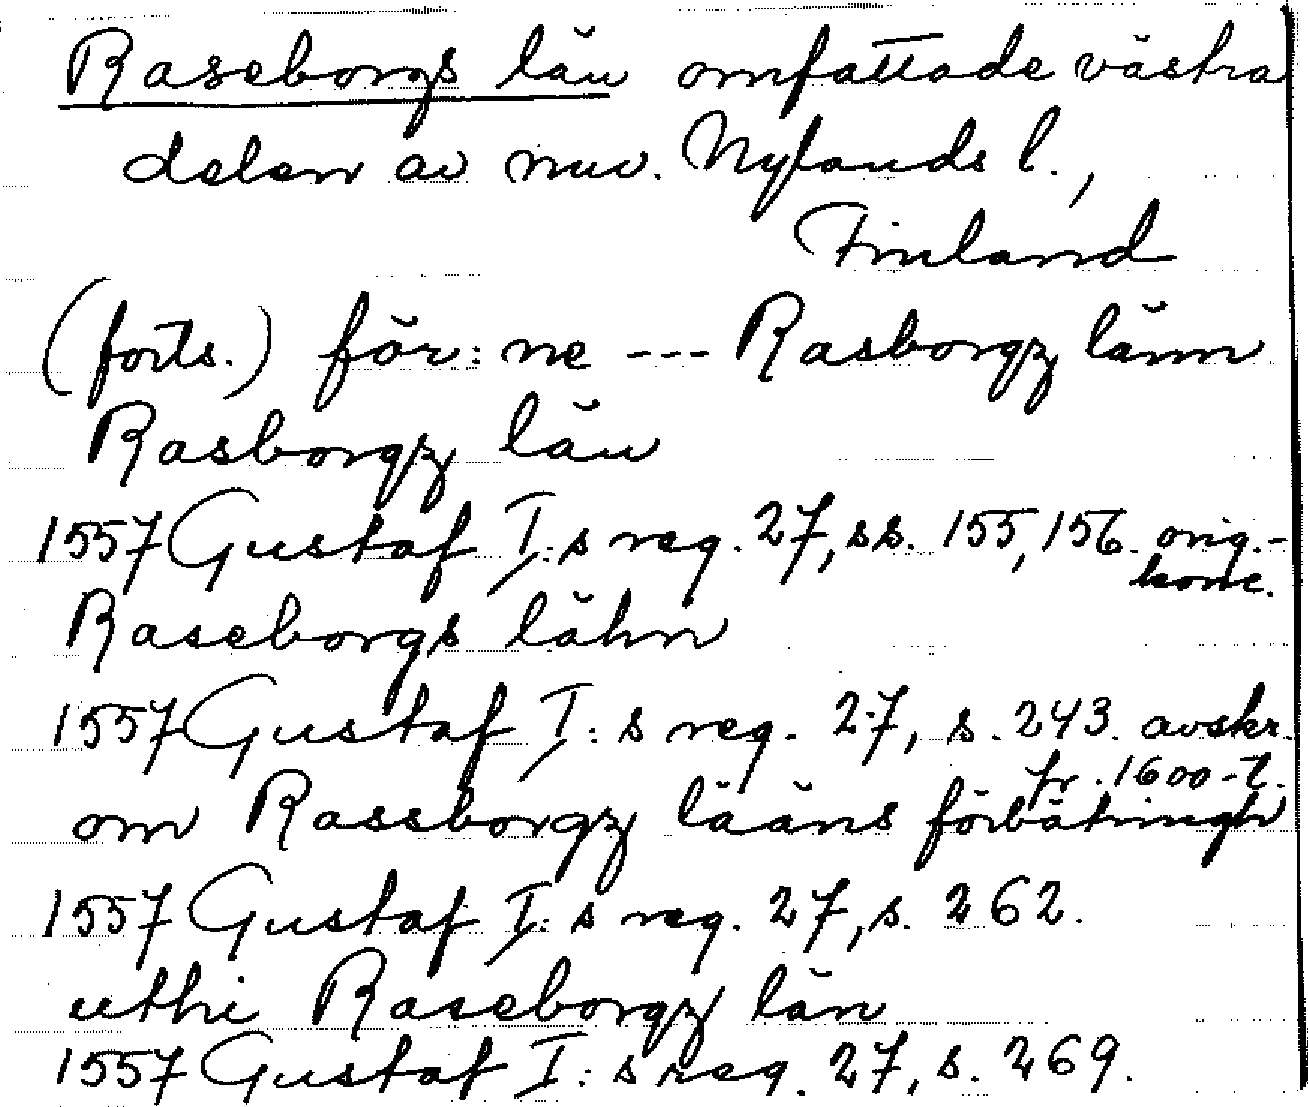 Raseborgs län omfattade västra
delen av nuv. Nylands l.,
Finland
(forts.) för:ne --- Rasborgz länn
Rasborgz län
1557 Gustaf I:s reg. 27, ss. 155, 156. orig.-
konc.
Raseborgs lähn
1557 Gustaf I:s reg. 27, s. 243. avskr.
fr. 1600-t.
om Rassborgz lääns förbätringh
1557 Gustaf I:s reg. 27, s. 262.
uthi Raseborgz län
1557 Gustaf I:s reg. 27, s. 269.